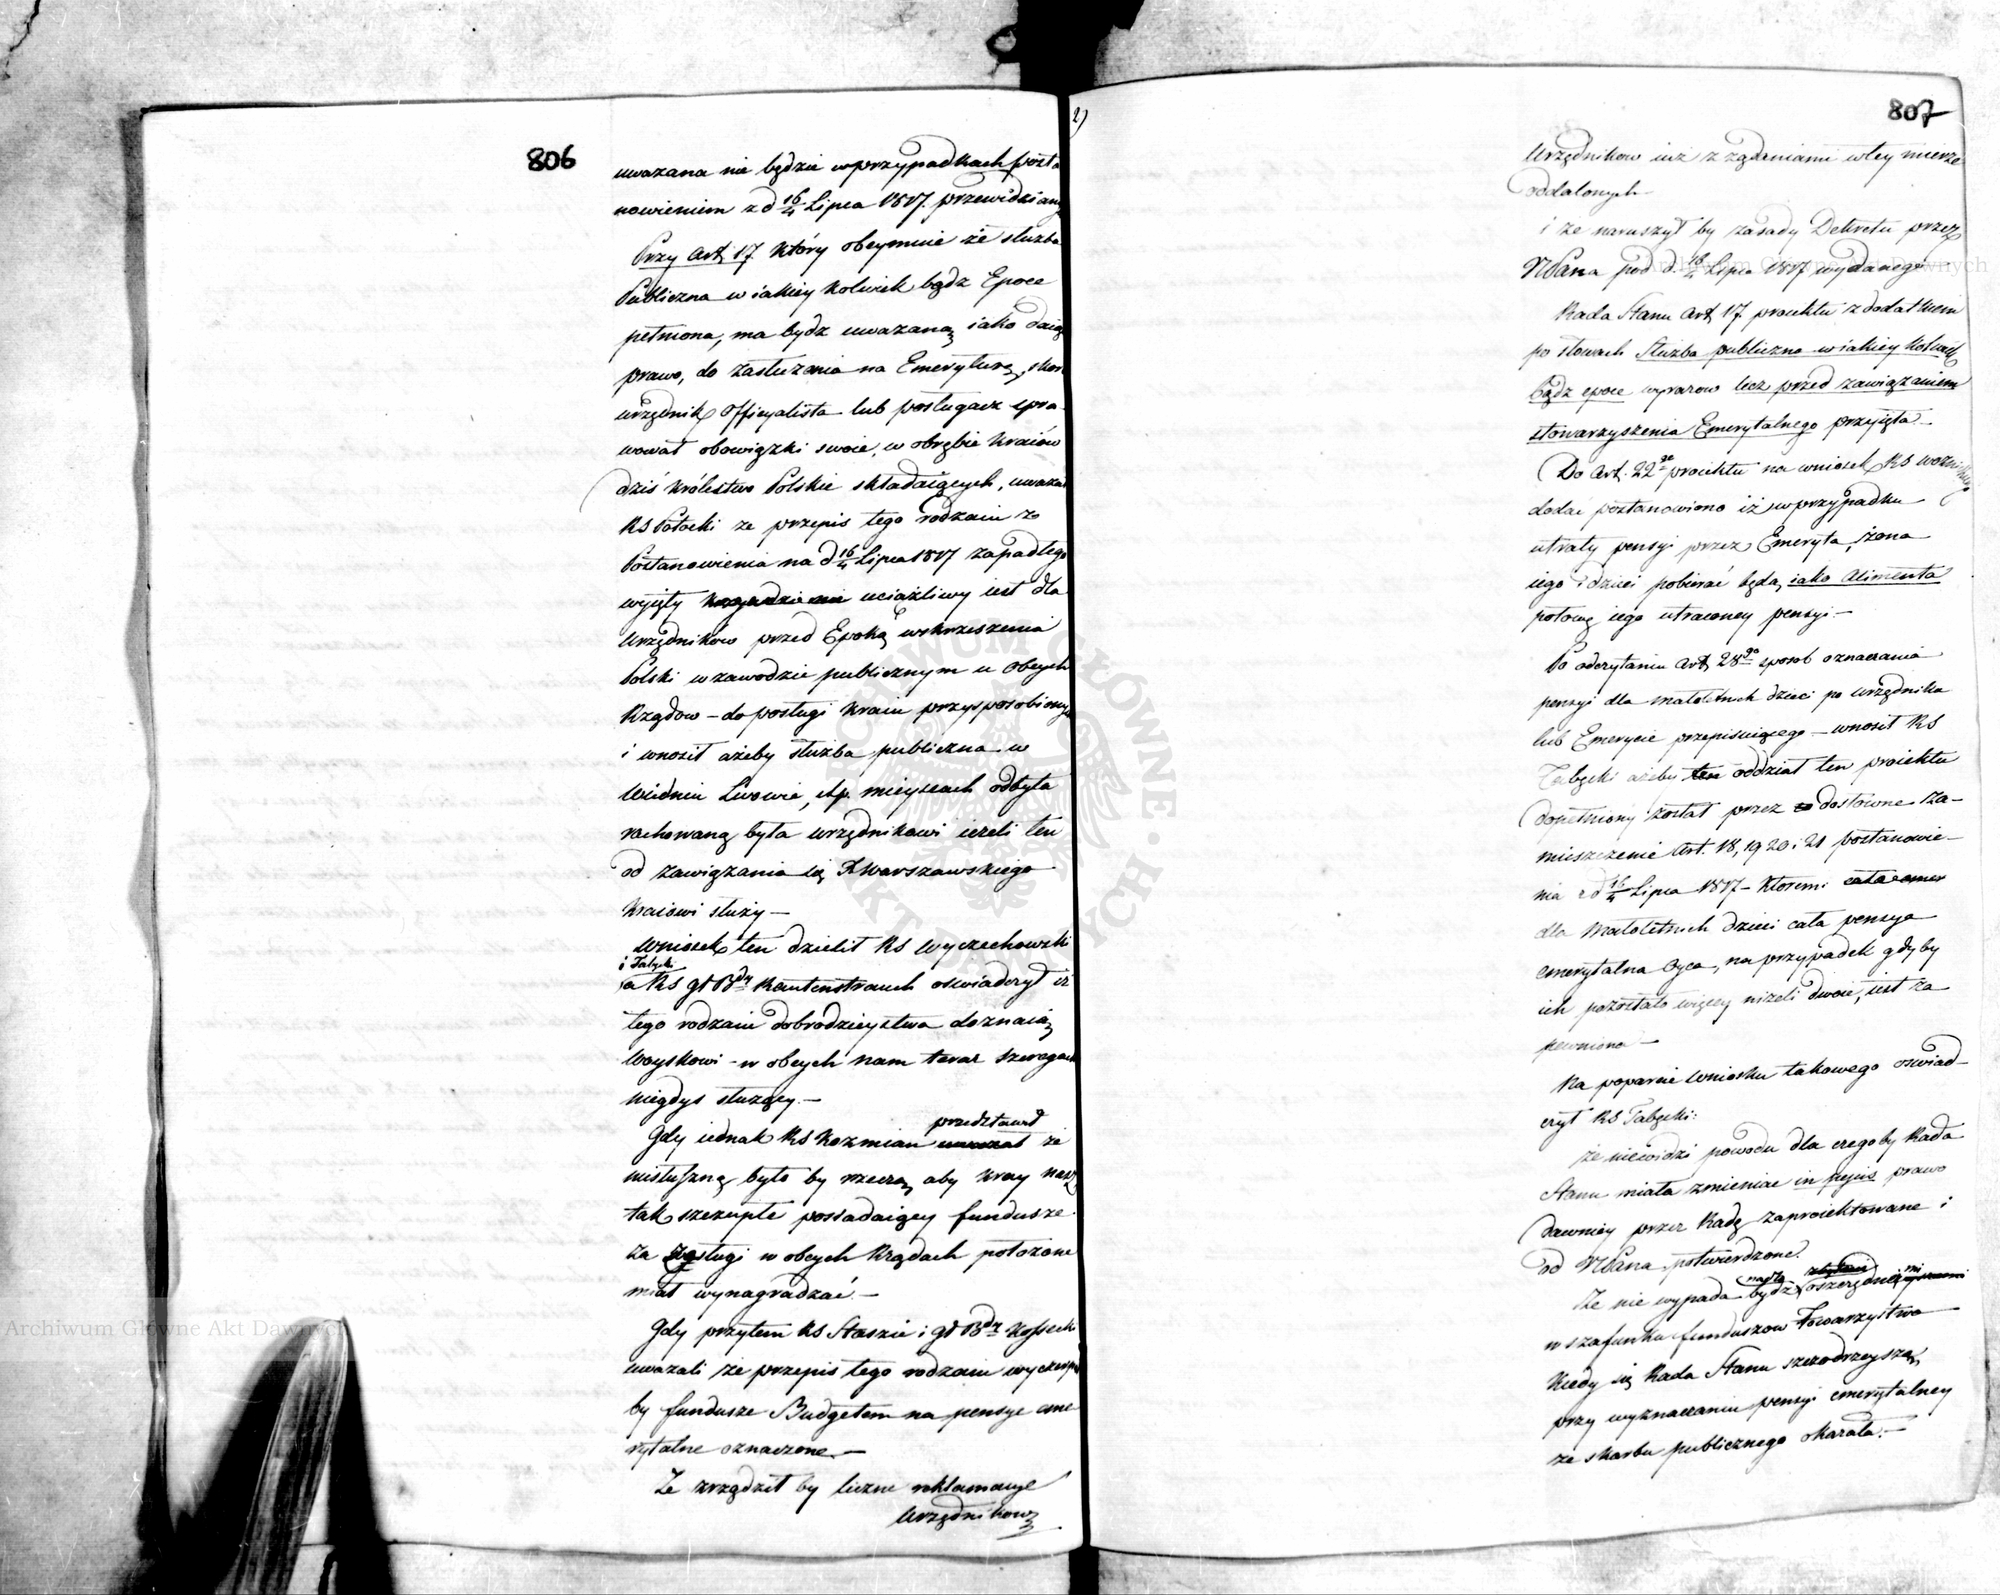 806
uwazana nie będzie w przypadkach posta
nowieniem z d 16/4 Lipca 1817. przewidziany
Przy Art 17 który obeymuie że służba
Publiczna w iakiey kolwiek bądz Epoce
pełniona, ma bydz uwazaną iako daiąc
prawo, do zasłużenia na Emeryturę, skoro
urzędnik Officyalista lub posługacz spra
wował obowiązki swoie, w obrębie kraiów
dziś Królestwo Polskie składaiących, uważał
RS Potocki ze przepis tego rodzaiu z
Postanowienia na d 16/4 Lipca 1817 zapadłego
wyięty uciążliwy iest dla
Urzędników przed Epoką wskrzeszenia
Polski w zawodzie publicznym u Obcych
Rządow – do posługi kraiu przysposobionych
i wnosił ażeby służba publiczna w
Wiedniu Lwowie, etp. mieyscach odbyta
rachowaną była urzędnikowi ieżeli ten
od zawiązania się X Warszawskiego
kraiowi służy –
Wniosek ten dzielił RS Wyczechowski
i Tabęcki
a RS gł Bdy Rautenstrauch oświadczył iż
tego rodzaiu dobrodzieystwa doznaią
Woyskowi – w obcych nam teraz szeregach
niegdys służący. –
przedstawił
Gdy iednak RS Kozmian uważał że
niesłuszną było by rzeczą, aby kray nasz
tak szczupłe posiadaiący fundusze
za zasługi w obcych Rządach położone
miał wynagradzać. –
Gdy przytem RS Staszic i gł Bdy Kossecki
uwazali że przepis tego rodzaiu wyczerpał
by fundusze Budgetem na pensye eme
rytalne oznaczone. –
Ze zrządził by liczne reklamacye
Urzędnikow
2)
807
Urzędnikow iuż z żądaniami w tey mierze
oddalonych –
i że naruszył by zasady Dekretu przez
NPana pod d. 16/4 Lipca 1817 wydanego
Rada Stanu Art 17 proiektu z dodatkiem
po słowach Służba publiczna w iakiey kolwiek
bądz epoce wyrazow lecz przed zawiązaniem
stowarzyszenia Emerytalnego przyięła. –
Do Art. 22go proiektu na wniosek RS Woznickiego
dodać postanowiono iż w przypadku
utraty pensyi przez Emeryta, żona
iego i dzieci pobierać będą iako Alimenta
połowę iego utraconey pensyi. –
Po odczytaniu Art 28go sposob oznaczania
pensyi dla małoletnich dzieci po urzędniku
lub Emerycie przepisuiącego – wnosił RS
Tabęcki ażeby ten oddział ten proiektu
dopełniony został przez dosłowne za-
mieszczenie Art. 18, 19 20 i 21 postanowie-
nia z d 16/4 Lipca 1817 – któremi cała emer
dla małoletnich dzieci cała pensya
emerytalna Oyca, na przypadek gdyby
ich pozostało więcey niżeli dwoie, iest za
pewniona –
Na poparcie wniosku takowego oświad-
czył RS Tabęcki:
że niewidzi powodu dla czego by Rada
Stanu miała zmieniać in pejus prawo
dawniey przez Radę zaproiektowane i
od NPana potwierdzone.
Ze nie wypada bydź oszczędniey
w szafunku funduszow Towarzystwa
kiedy się Rada Stanu szczodrzeyszą,
przy wyznaczaniu pensyi emerytalney
ze skarbu publicznego okazała. –
Archiwum Główne Akt Dawnych
Archiwum Główne Akt Dawnych